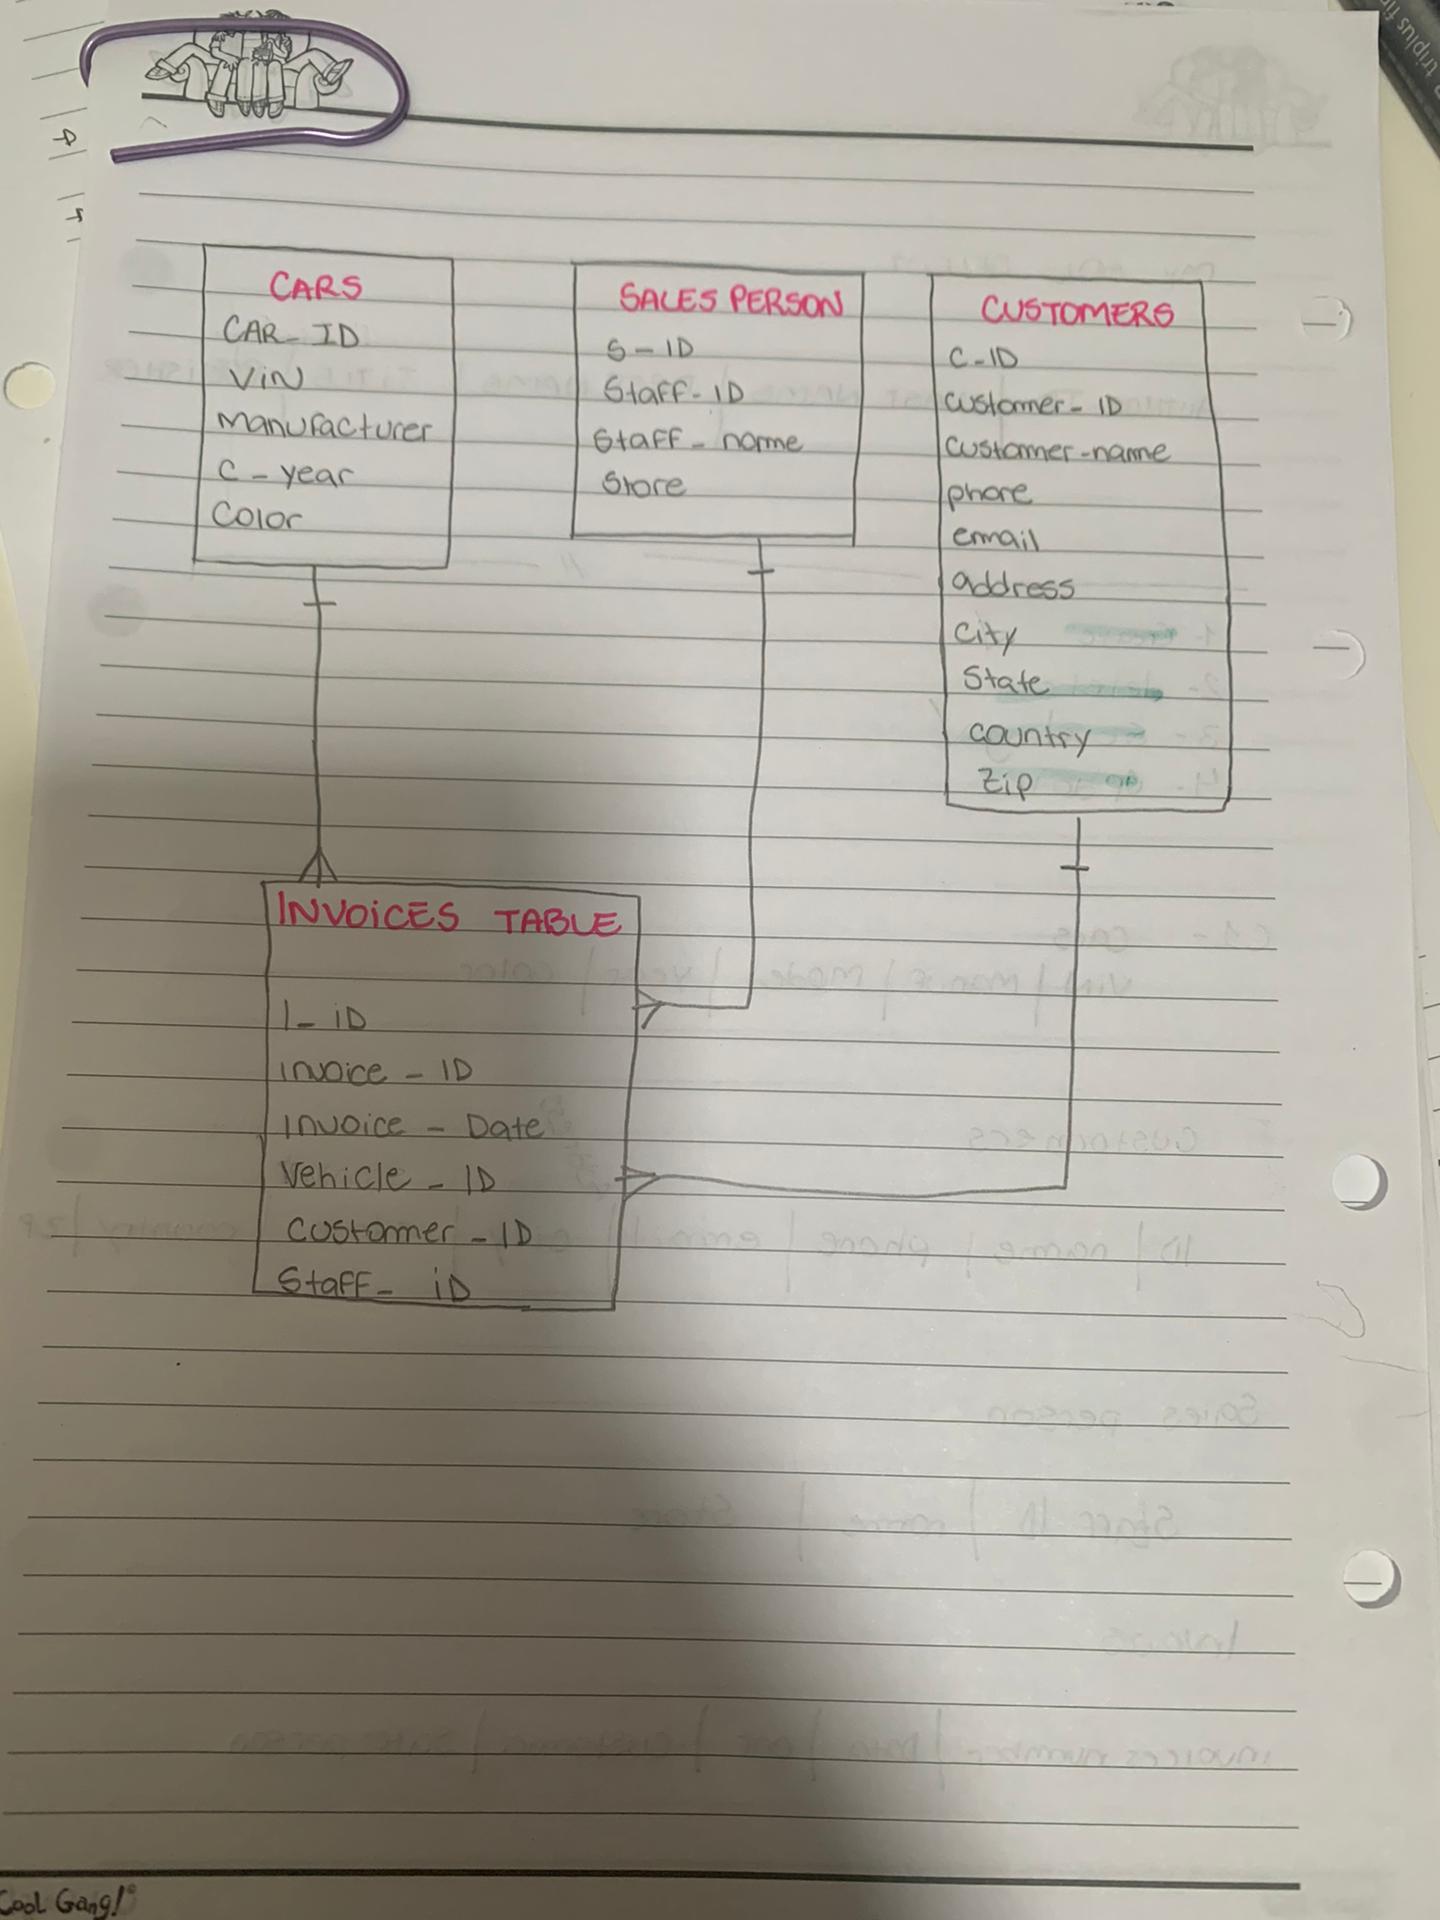 CARS
CAR_ID
ViN
Manufacturer
C-year
Color
SALES PERSON
S-ID
Staff-ID
Staff-name
Store
CUSTOMERS
C-ID
customer-ID
customer-name
phone
email
address
city
State
country
Zip
INVOiCES TABLE
I_iD
invoice-ID
invoice-Date
Vehicle-ID
customer-ID
Staff_iD
Cool Gang!
triplus fi